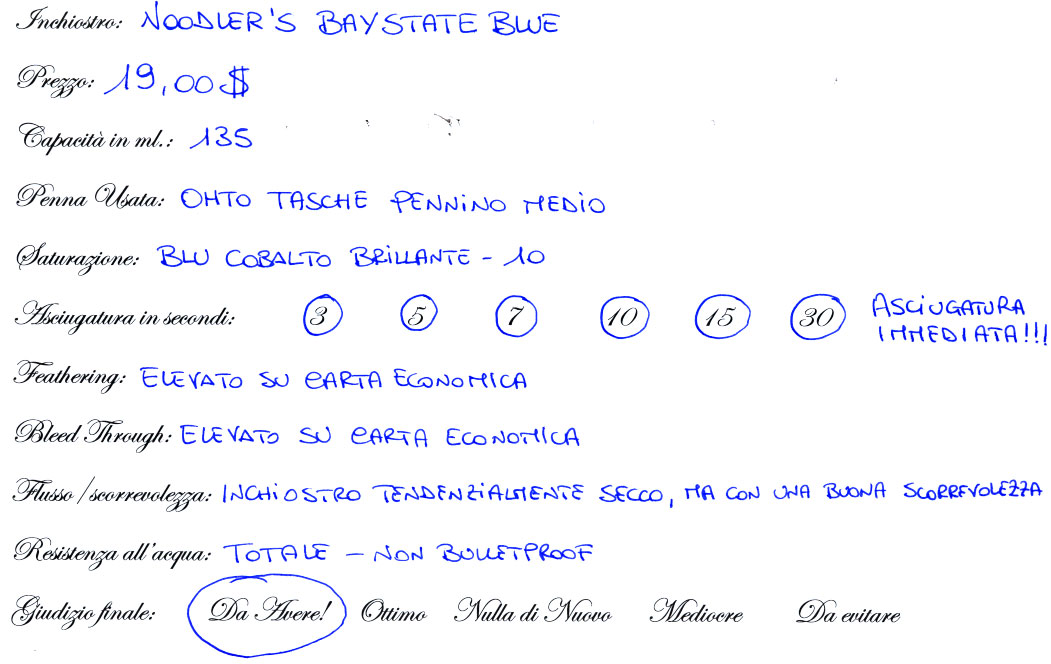 Inchiostro: NOODLER'S BAYSTATE BLUE
Prezzo: 19,00 $
Capacità in ml.: 135
Penna Usata: OHTO TASCHE PENNINO MEDIO
Saturazione: BLU COBALTO BRILLANTE - 10
Asciugatura in secondi: 3 5 7 10 15 30 ASCIUGATURA
IMMEDIATA!!!
Feathering: ELEVATO SU CARTA ECONOMICA
Bleed Through: ELEVATO SU CARTA ECONOMICA
Flusso/scorrevolezza: INCHIOSTRO TENDENZIALMENTE SECCO, MA CON UNA BUONA SCORREVOLEZZA
Resistenza all'acqua: TOTALE - NON BULLETPROOF
Giudizio finale: Da Avere! Ottimo Nulla di Nuovo Mediocre Da evitare